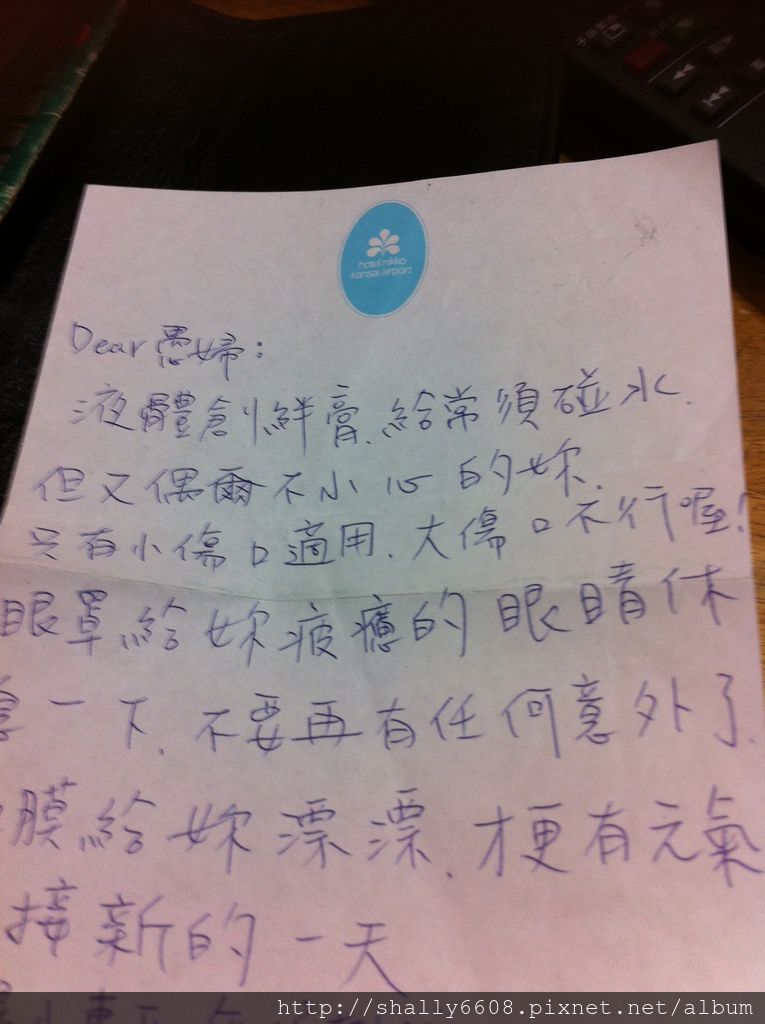 hotel nikko
kansai airport
Dear 愚婦:
液體創鮮膏.給常須碰水.
但又偶爾不小心的妳.
只有小傷口適用.大傷口不行喔!
眼罩給妳疲憊的眼睛休
一下.不要再有任何意外了.
膜給妳漂漂.才更有元氣
接新的一天
http://shally6608.pixnet.net/album